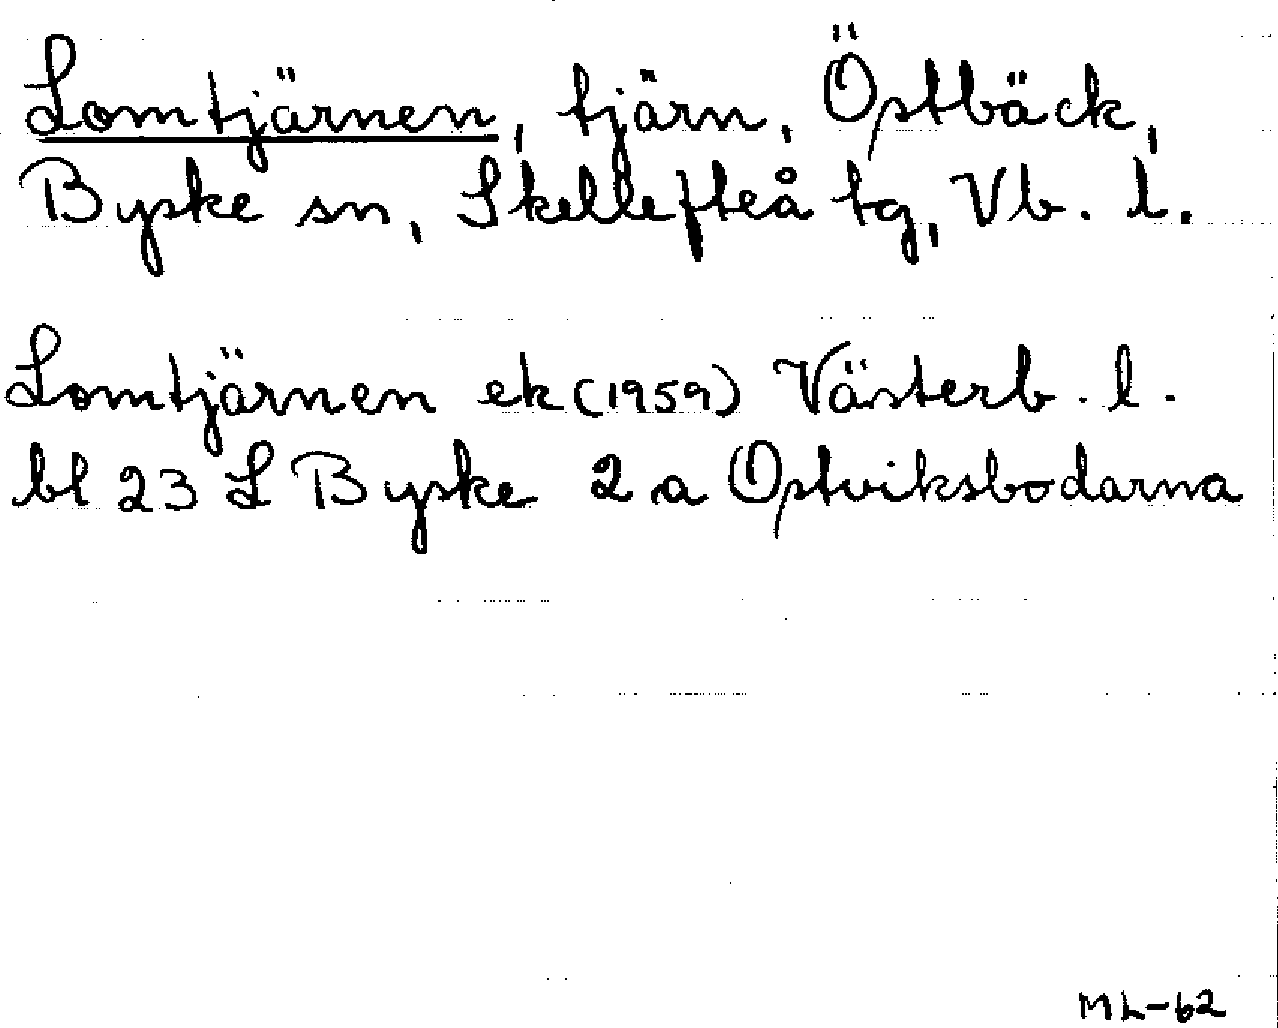 Lomtjärnen, tjärn, Östbäck,
Byske sn, Skellefteå tg, Vb. l.
Lomtjärnen ek (1959) Västerb. l.
bl 23 L Byske 2 a Ostviksbodarna
ML-62